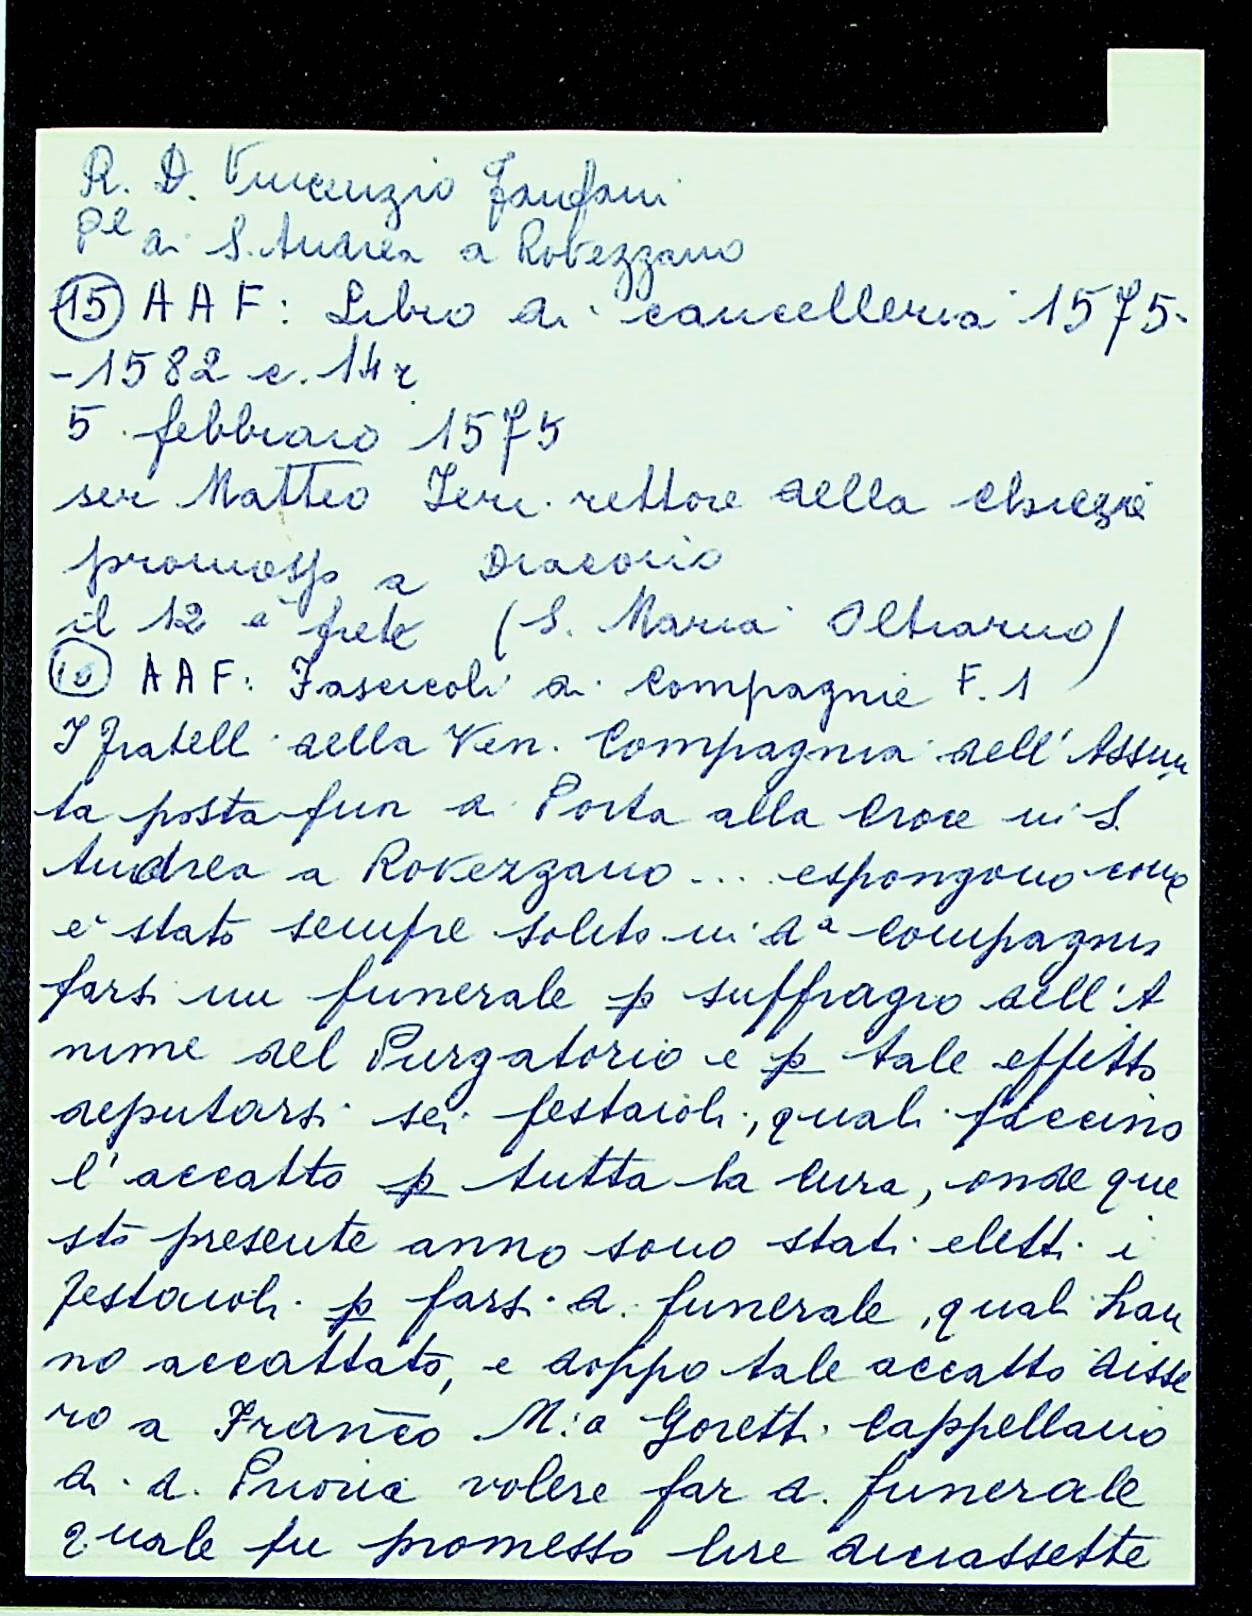 R. D. Vincenzio Fanfani
Pe di S. Andrea a Rovezzano
(15) A A F: Libro di cancelleria 1575-
-1582 c. 14 r
5 febbraio 1575
ser Matteo Jeri rettore della chiesa
promosso a Diacono
il 12 è prete (S. Maria Oltrarno)
(16) A A F: Fascicoli di Compagnie F. 1
I fratelli della Ven. Compagnia dell'Assun
ta posta fun a Porta alla Croce in S.
Andrea a Rovezzano ... espongono come
è stato sempre solito in da compagnia
farsi un funerale p suffragio dell'A
nime del Purgatorio e p tale effetto
deputarsi sei festaioli, quali faccino
l'accatto p tutta la Cura, onde que
sto presente anno sono stati eletti i
festaioli p farsi d. funerale, quali han
no accattato, e doppo tale accatto disse
ro a Franco M:a Goretti Cappellano
di d. Prioria volere far d. funerale
quale fu promesso lire diciassette